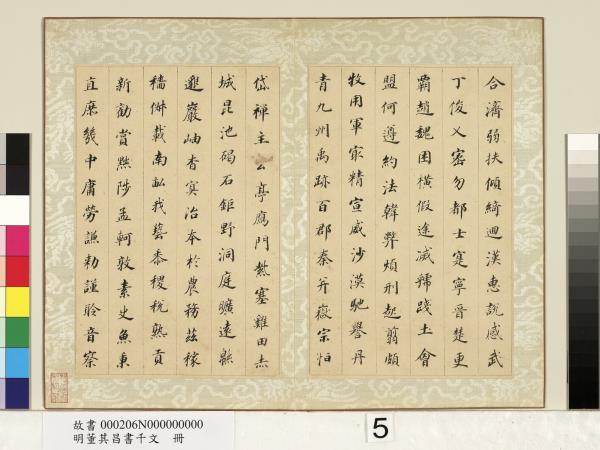 合濟弱扶傾綺迴漢惠說感武
丁俊乂密勿都士寔寧晉楚更
霸趙魏困橫假途滅虢踐土會
盟何遵約法韓弊煩刑起翦頗
牧用軍最精宣威沙漠馳譽丹
青九州禹跡百郡秦并嶽宗恒
岱禪主云亭鴈門紫塞雞田赤
城昆池碣石鉅野洞庭曠遠緜
邈巖岫杳冥治本於農務茲稼
穡俶載南畝我藝黍稷稅熟貢
新勸賞黜陟孟軻敦素史魚秉
直庶幾中庸勞謙勅謹聆音察
故書 000206N000000000
明董其昌書千文 冊
5